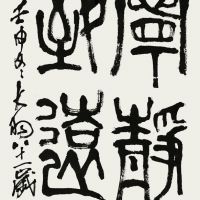 寧靜
致遠
壬申冬大翔八十一歲